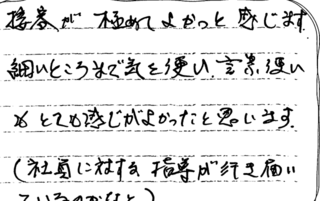 接客が極めてよかったと感じます。
細いところまで気を使い、言葉使い
もとても感じがよかったと思います。
(社員に対する指導が行き届い
ているのかなと)